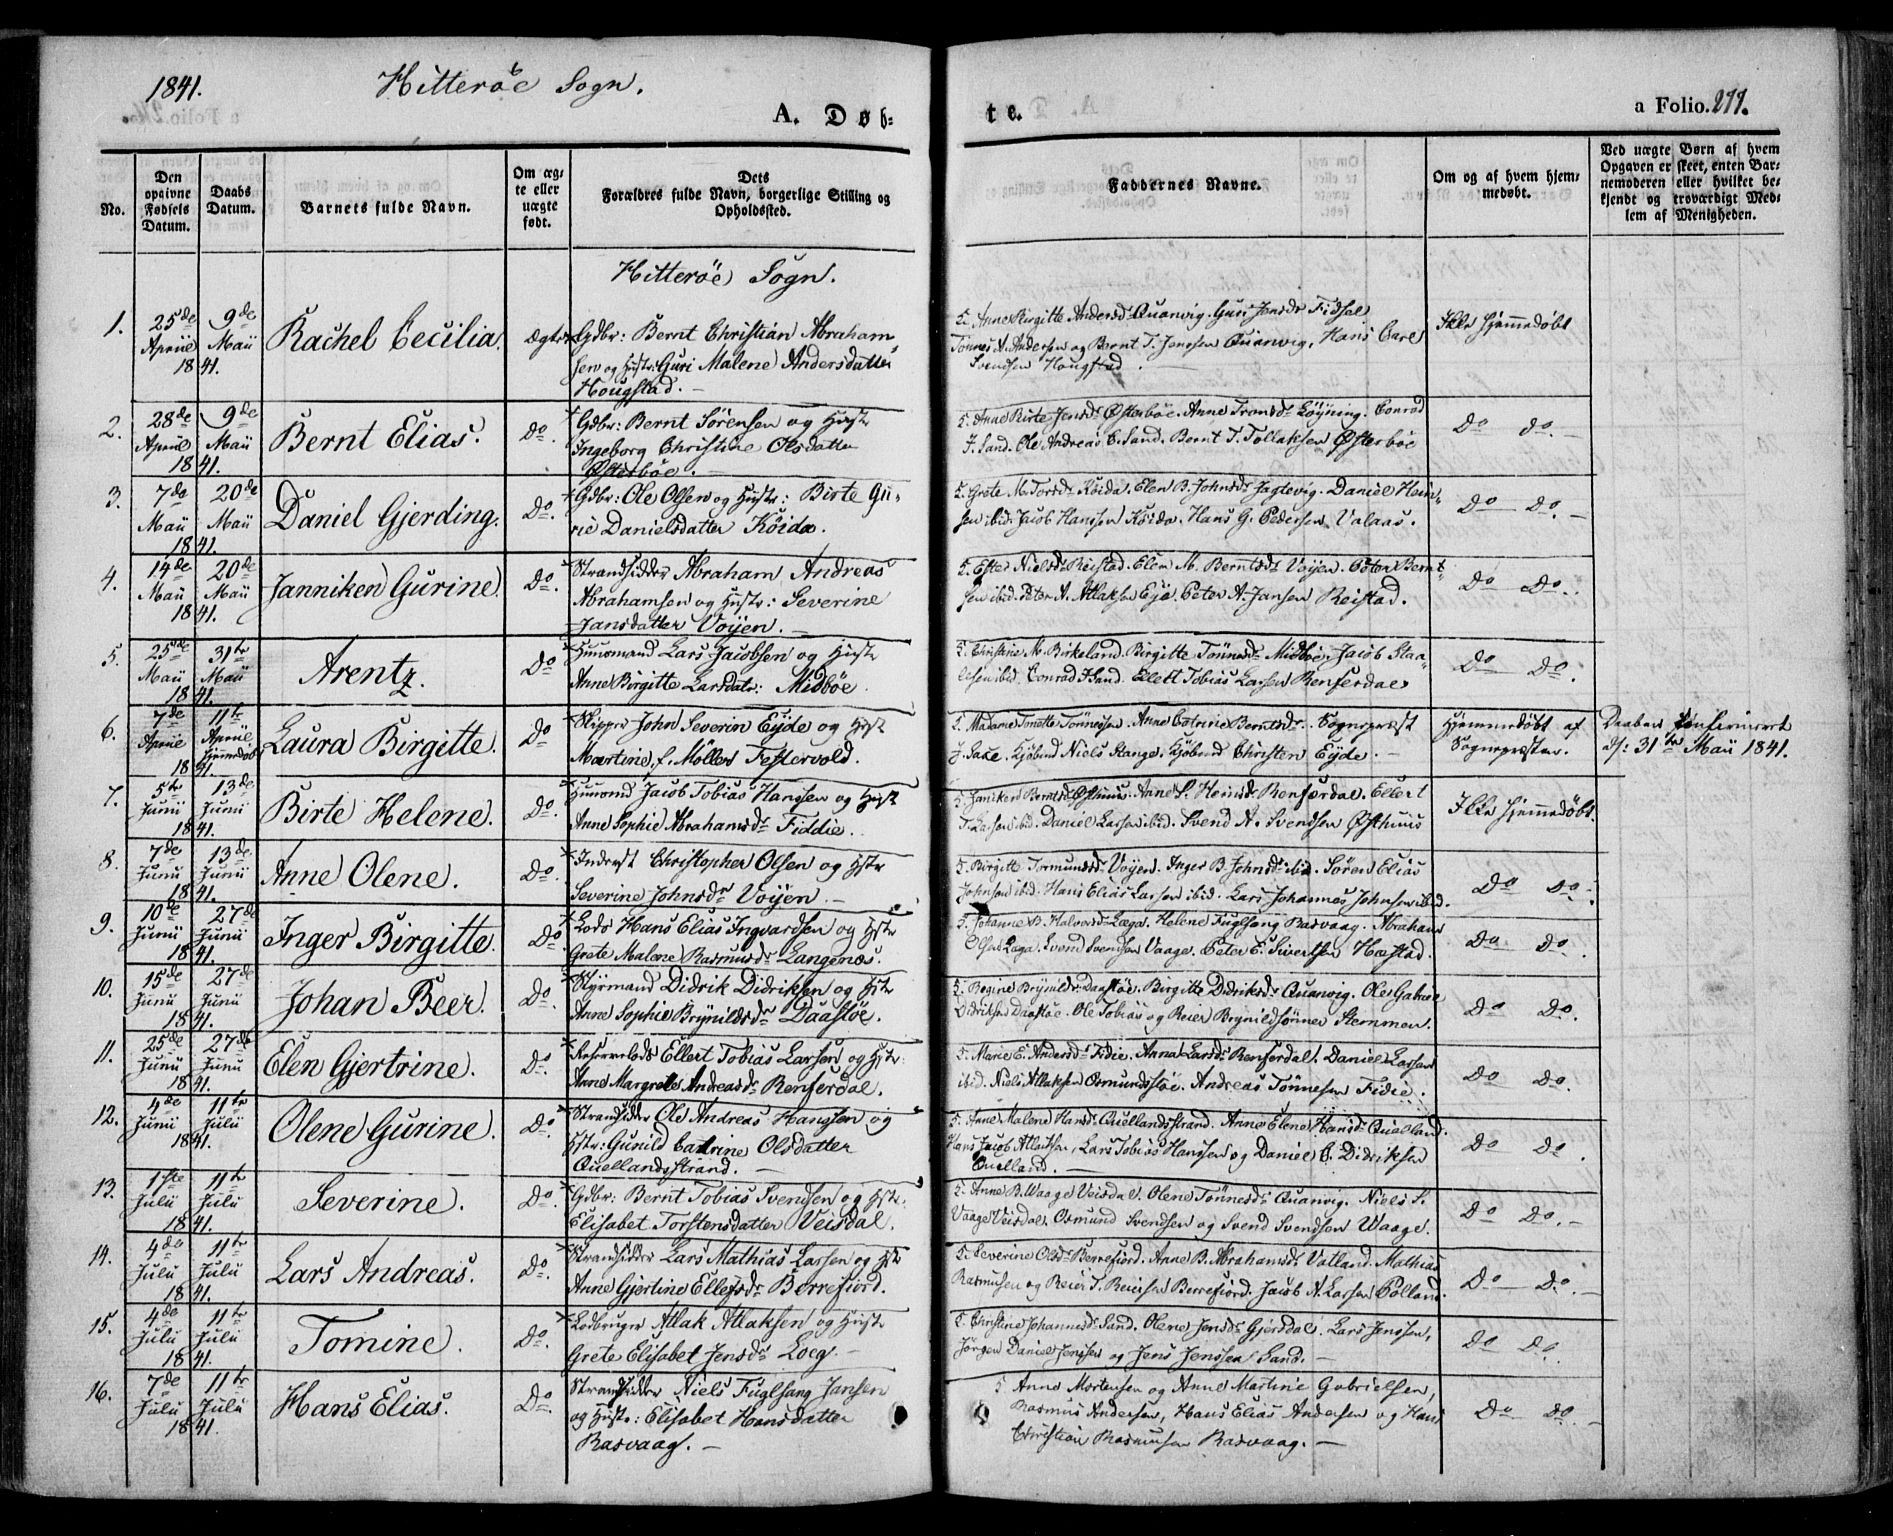 1841.
Hitterøe Sogn.
A. Døb-
te.
a Folio. 277.
No.
Den opgivne Fødsels Datum.
Daabs Datum.
Barnets fulde Navn.
Om ægte eller uægte født.
Dets Forældres fulde Navn, borgerlige Stilling og Opholdssted.
Faddernes Navne.
Om og af hvem hjemmedøbt.
Ved uægte Børn af hvem Opgaven er skeet, enten Barnemoderen eller hvilket bekjendt og troværdigt Medlem af Menigheden.
Hitterøe Sogn.
1. 25de April 1841. 9de Maii Rachel Cecilia. ægte
Gdbr: Bernt Christian Abraham
sen og Hustr: Guri Malene Andersdatter
Hougstad.
5. Anne Birgitte Andersd. Quanvig. Guri Jensdr Fidsel
Tønnes A. Andersen og Bernt T. Jenssen Quanvig, Hans Carl
Svendsen Hougstad.
Ikke hjemmedøbt
2. 28de April 1841. 9de Maii Bernt Elias. Do.
Gdbr: Bernt Sørensen og Hustr
Ingeborg Christine Olsdatter
Østerbøe.
5. Anne Birte Jensdr Østerbøe. Anne Tronsdr Løyning. Conrad
J. Sand. Ole Andreas C. Sand. Bernt T. Tollaksen Østerbøe
Do Do.
3. 7de Maii 1841. 20de Maii Daniel Gjerding. Do.
Gdbr: Ole Olsen og Hustr: Birte Gu-
rie Danielsdatter Køida.
5. Grete M. Torsdr Køida. Elen B. Johnsdr Jagtevig. Daniel Hein-
sen ibid. Jacob Hanssen Køida. Hans G. Pedersen Valaas.
Do Do.
4. 14de Maii 1841. 20de Maii Janniken Gurine. Do.
Strandsidder Abraham Andreas
Abrahamsen og Hustr: Severine
Jansdatter Voijen.
5. Ester Nielsdr Reistad. Elen M. Berntsdr Voijen. Peter Bernt-
sen ibid. Peter A. Atlaksen Eje. Peter A. Jansen Reistad.
Do Do.
5. 25de Maii 1841. 31te Maii Arentz. Do
Huusmand Lars Jacobsen og Hustr
Anne Birgitte Larsdatr: Midbøe.
5. Christine M. Birkeland. Birgitte Tønnesdr Midbøe. Jacob Staa-
lesen ibid. Conrad J. Sand. Ellert Tobias Larsen Renferdal
Do Do.
6. 7de April 1841. 11te April Hjemmedøbt Laura Birgitte. Do
Skipper John Severin Eyde og Hst
Martine, f. Möller Festervold.
5. Madame Tonette Tønnesen. Anne Catrine Berntsdr. Sognepræst
J. Saxe. Kjøbmd Niels Stange. Kjøbmd Christen Eyde.
Hjemmedøbt af
Sognepræsten.
Daaben confirmeret
d: 31te Maii 1841.
7. 5te Junii 1841. 13de Junii Birte Helene. Do.
Huusmd Jacob Tobias Hanssen og Hst
Anne Sophie Abrahamsdr Fiddie.
5. Janiken Berntsdr Østhuus. Anne S. Heinsdr Renferdal. Ellert
T. Larsen ibid. Daniel Larsen ibid. Svend A. Svendsen Østhuus
Ikke hjemmedøbt.
8. 7de Junii 1841. 13de Junii Anne Olene. Do.
Inderst Christopher Olsen og Hstr
Severine Johnsdr Voijen.
5. Birgitte Tormundsdr Voijen. Inger B. Johnsdr ibid. Søren Elias
Johnsen ibid. Hans Elias Larsen ibid. Lars Johannes Johnsen ibid.
Do Do.
9. 10de Junii 1841. 27de Junii Inger Birgitte. Do
Lods Hans Elias Ingvardsen og Hstr
Grete Malene Rasmusdr Langenæs.
5. Johanne B. Halvorsdr Læga. Helene Fuglsang Rasvaag. Abraham
Olsen Læga. Svend Svendsen Vaage. Peter E. Sivertsen Hæstad.
Do. Do.
10. 15de Junii 1841. 27de Junii Johan Beer. Do.
Styrmand Didrik Didriksen og Hstr
Anne Sophie Brynildsdr Daastøe.
5. Regine Brynildsdr Daastøe. Birgitte Didriksdr Quanvig. Ole Gabriel
Didriksen Daastøe. Ole Tobias og Reier Brynildsønner Stemmen.
Do Do.
11. 25de Junii 1841. 27de Junii Elen Gjertrine. Do.
Reservelods Ellert Tobias Larsen og Hstr:
Anne Margrete Andreasdr Renferdal.
5. Marie E. Andersdr Fidie. Anna Larsdr Renferdal. Daniel Larsen
ibid. Niels Atlaksen Osmundstøe. Andreas Tønnesen Fidie.
Do Do.
12. 4de Junii 1841. 11te Julii Olene Gurine. Do.
Strandsidder Ole Andreas Hanssen og
Hstr: Gunild Catrine Olsdatter
Quellandsstrand.
5. Anne Malene Hansdr Quellandsstrand. Anne Elene Hansdr Quelland.
Hans Jacob Atlaksen, Lars Tobias Hanssen og Daniel C. Didriksen
Quelland.
Do Do.
13. 1ste Julii 1841. 11te Julii Severine. Do.
Gdbr: Bernt Tobias Svendsen og Hstr.
Elisabet Torstensdatter Veisdal.
5. Anne B. Waage Veisdal. Olene Tønnesdr Quanvig. Niels S.
Vaage Veisdal. Osmund Svendsen og Svend Svendsen Waage.
Do Do.
14. 4de Julii 1841. 11te Julii Lars Andreas. Do.
Strandsidder Lars Mathias Larsen og Hst
Anne Gjertine Ellefsdr Berrefiord.
5. Severine Olsdr Berrefiord. Anne B. Abrahamsdr Vatland. Mathias
Rasmusen og Reier T. Reiersen Berrefiord. Jacob A. Larsen Polland.
Do Do.
15. 4de Julii 1841. 11te Julii Tomine. Do.
Lodbruger Atlak Atlaksen og Hustr
Grete Elisabet Jensdr Loeg.
5. Christine Johannesdr Sand. Olene Jensdr Gjerddal. Lars Jenssen,
Jørgen Daniel Jenssen og Jens Jenssen Sand.
Do Do.
16. 7de Julii 1841. 11te Julii Hans Elias. Do.
Strandsidder Niels Fuglsang Jansen
og Hustr: Elisabet Hansdatter
Rasvaag.
5 Anne Mortensen og Anne Martine Gabrielsen,
Rasmus Andersen, Hans Elias Andersen og Hans
Christian Rasmusen Rasvaag.
Do Do.